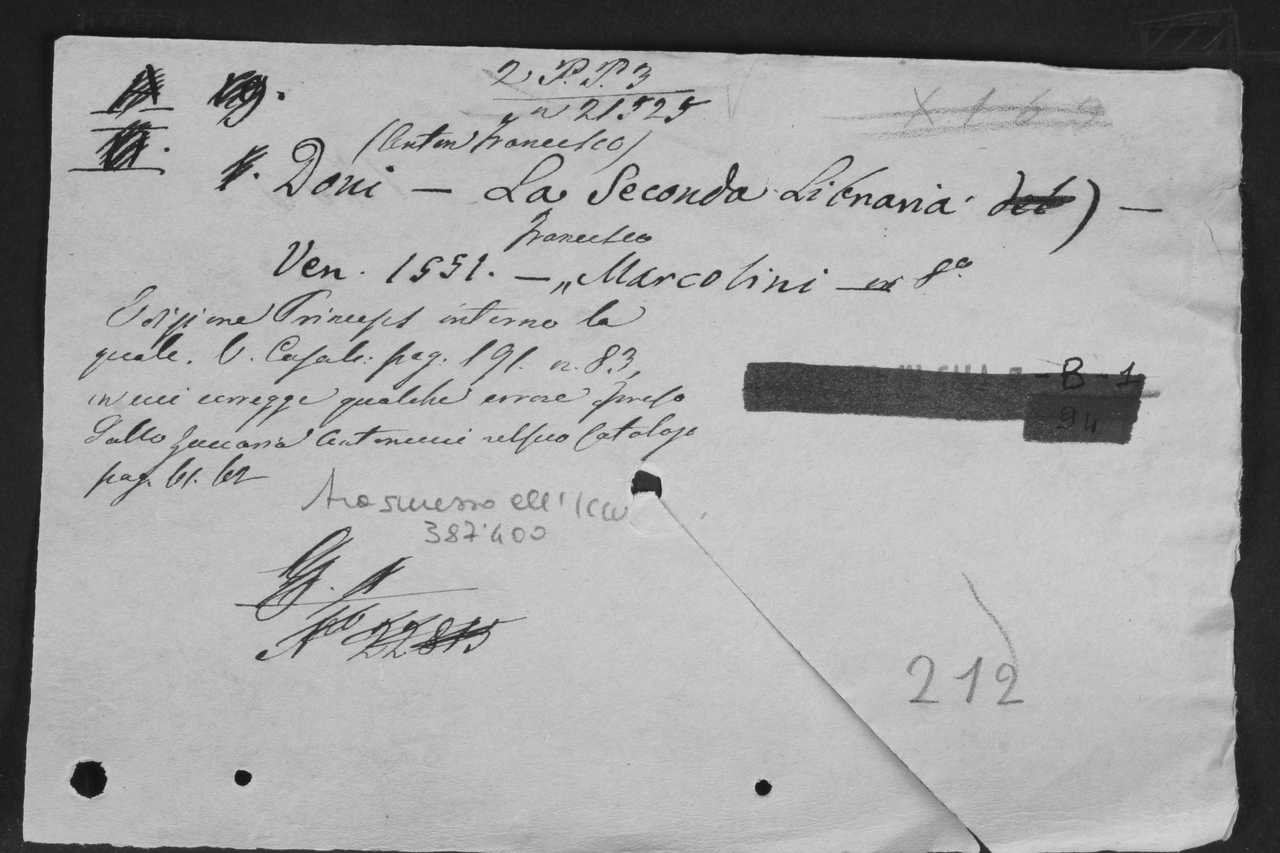 2 P.P.3
n 21525
X 1 6 4
(Anton Francesco)
Doni — La Seconda Libraria del ) —
Francesco
Ven. 1551. — „Marcolini — in 8º
Edizione Princeps intorno la
quale. V. Casali. pag. 191. n. 83,
in cui corregge qualche errore preso
dallo Zaccaria Antonucci nel suo Catalogo
pag. 61. 62
B - 1
94
trasmesso all'ICCU
387.400
22815
212